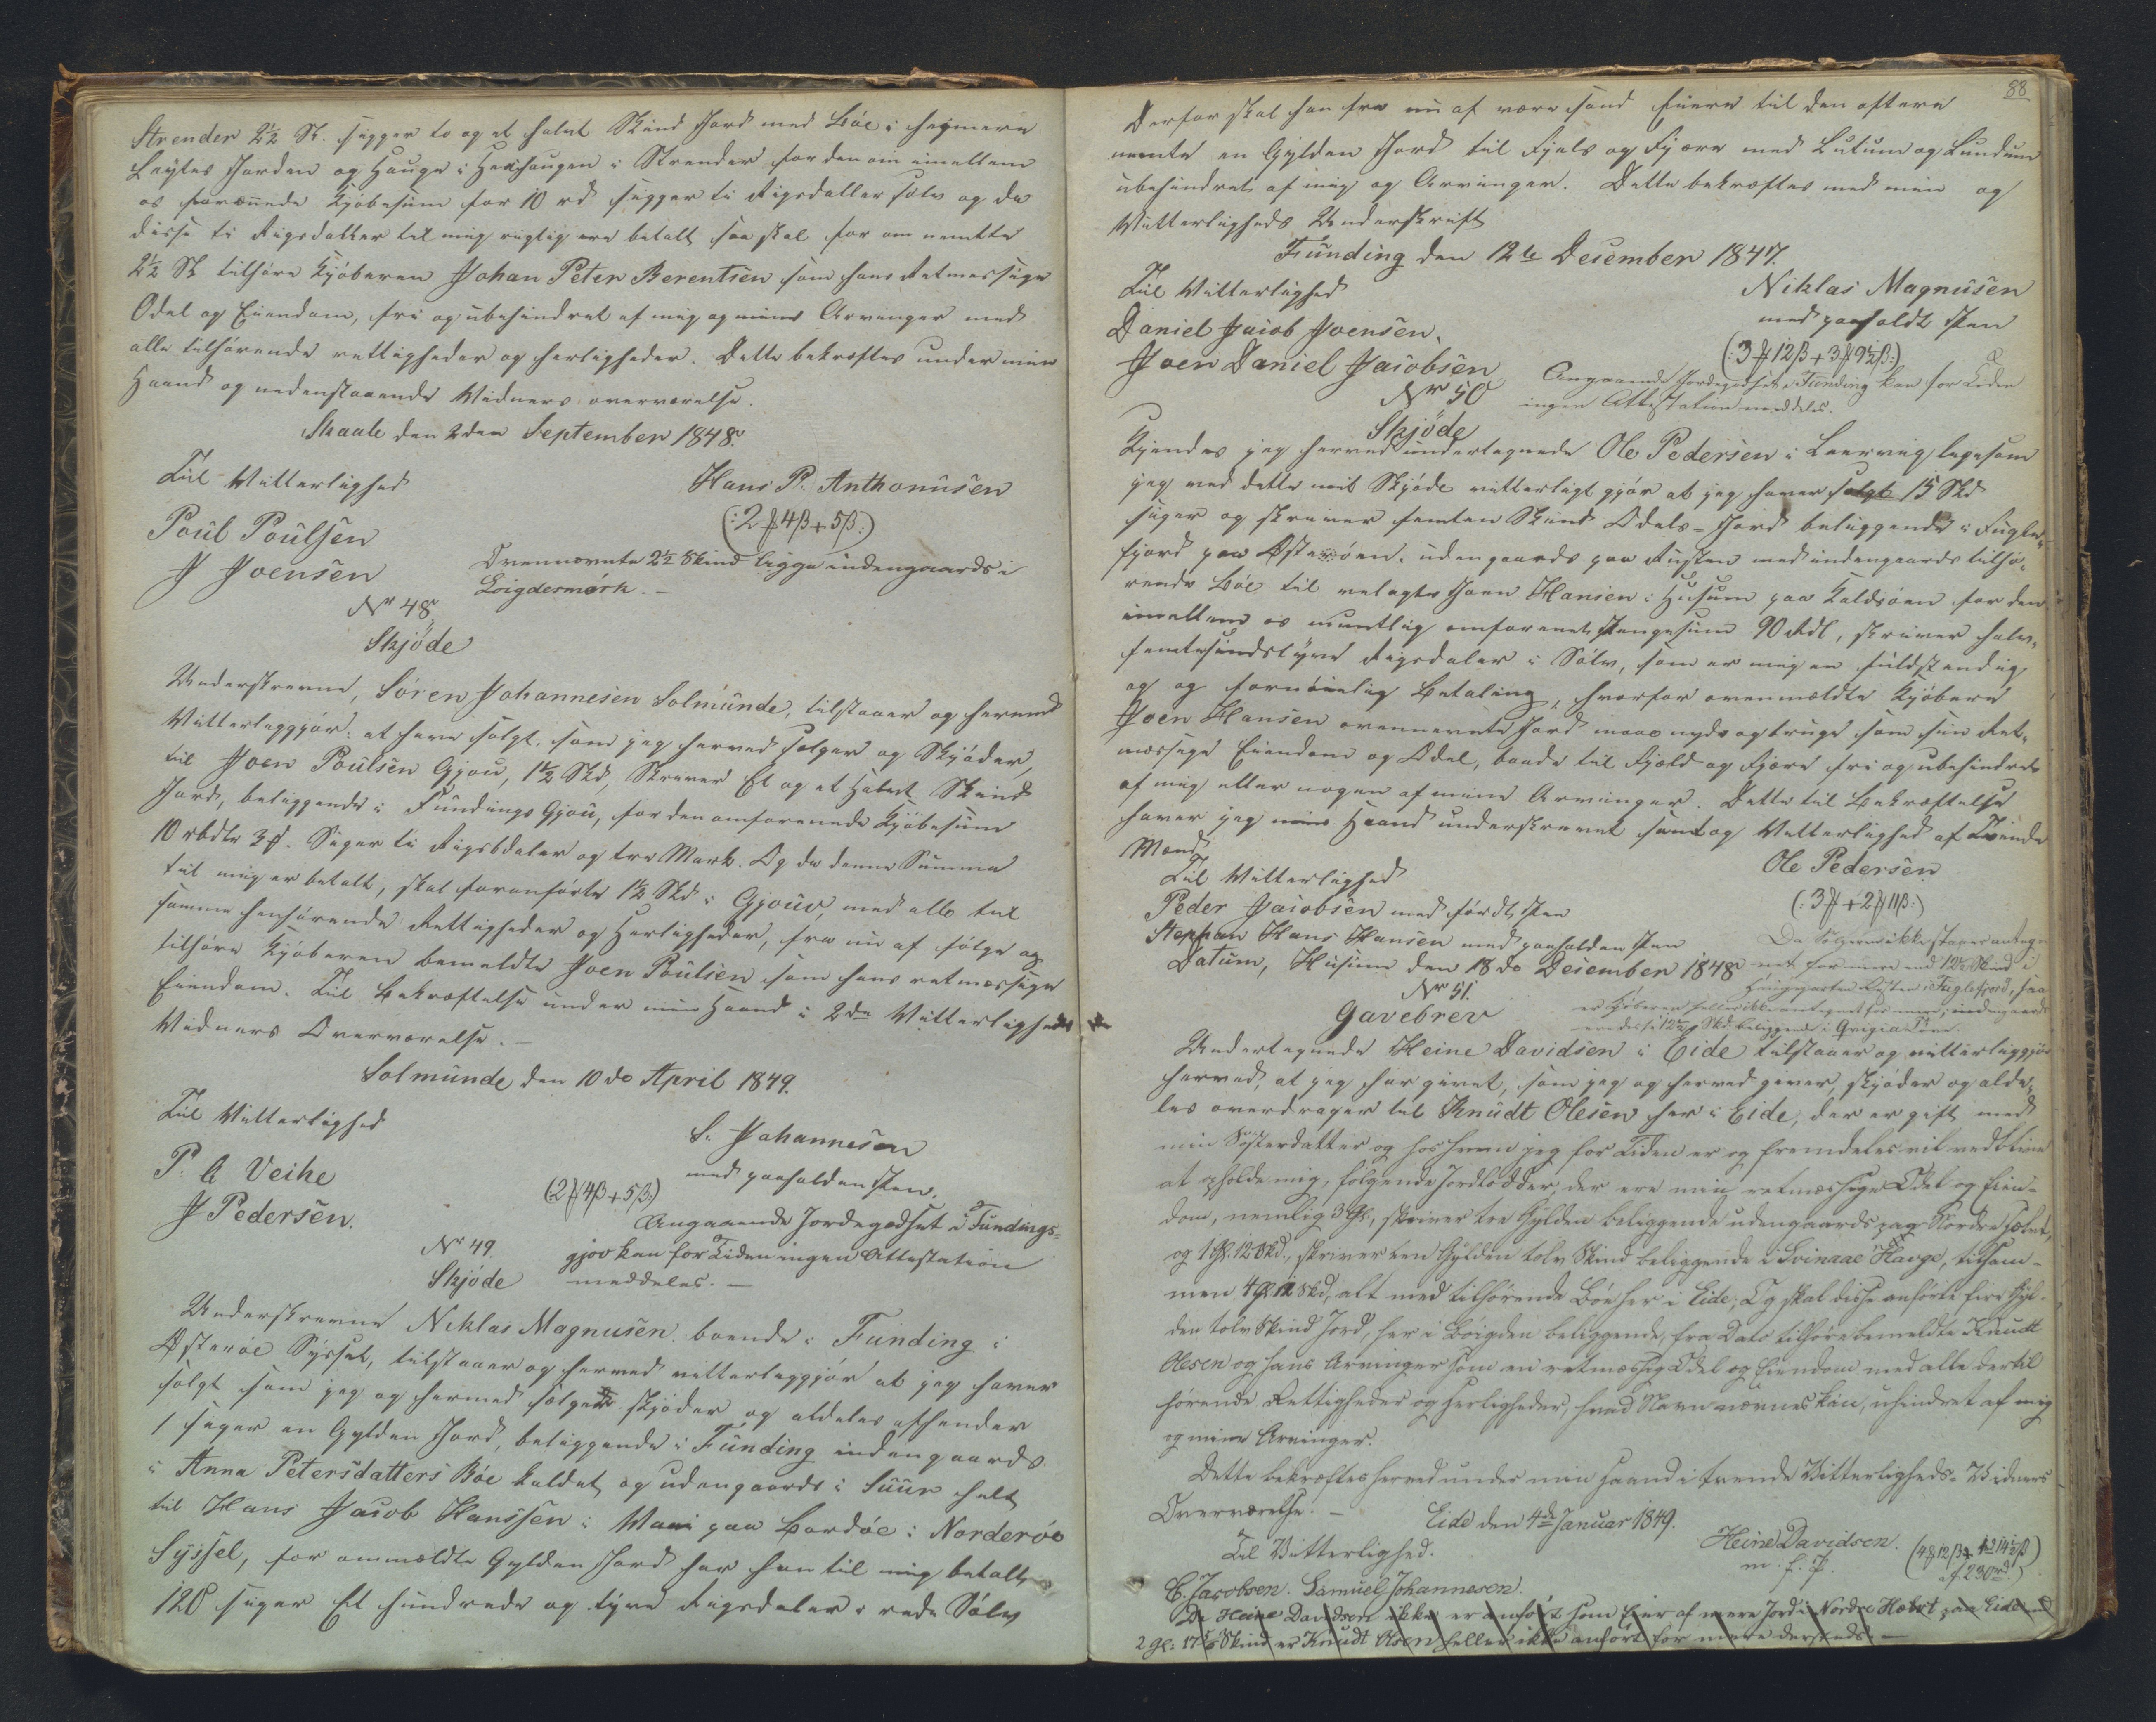 Strender 2½ Sk. sigger to og et halvt Skind Jord med Bøe i heimere
Leytes Jorden og Hauge i Hexhaugen i Strender for den om imellem
os forænede Kjøbesum for 10 rd sigger ti Rigsdaller sølv og da
disse ti Rigsdaller til mig rigtig ere betalt saa skal for om nemtte
2½ Sk tilhøre Kjøberen Johan Peter Berentsen som hans Retmessige
Odel og Eiendom, fri og ubehindret af mig og mine Arvinger med
alle tilhørende rettigheder og herligheder. Dette bekræftes under min
Haand og nedenstaaende Widners overværelse.
Skaale den 2den September 1848.
Til Witterlighed
Hans P. Anthoniusen
Poul Poulsen
(: 2 ℳ 4 β + 5 β :)
J Joensen
Ovennævnte 2½ Skind ligge indengaards i
Loigdesmørk. –
Nr 48
Skjøde
Underskrevne, Søren Johannesen Solmunde, tilstaaer og herved
Witterleggjør: at have solgt, som jeg herved sælger og Skjøder,
til Joen Poulsen Gjou, 1½ Skd, Skriver Et og et Halvt Skind
Jord, beliggende i Fundings Gjou, for den omforenede Kjøbesum
10 rbdlr 3 ℳ. Siger ti Rigsbdaler og tre Mark. Og da denne Summa
til mig er betalt, skal foranførte 1½ Skd i Gjouv, med alle til
samme henhørende Rettigheder og Herligheder, fra nu af følge og
tilhøre Kjøberen bemeldte Joen Poulsen som hans retmæssige
Eiendom. Til Bekræftelse under min Haand i 2de Witterligheds
Widners Overværelse. –
Solmunde den 10de April 1849.
Til Witterlighed
S. Johannesen
med paaholden Pen.
P. C Veihe
(2 ℳ 4 β + 5 β :)
J Pedersen.
Angaaende Jordegodset i Fundings=
gjov kan for Tiden ingen Attestation
meddeles. –
Nr 49.
Skjøde
Underskrevne Niklas Magnusen boende i Funding i
Østerøe Syssel, tilstaaer og herved vitterleggjør at jeg haver
solgt som jeg og hermed sælger skjøder og aldeles afhender
1 siger en Gylden Jord, beliggende i Funding indengaards
i Anna Petersdatters Bøe kaldet og udengaards i Suur helt
til Hans Jacob Hanssen i Waai paa Bordøe i Norderøe
Syssel, for ommældte Gylden Jord har han til mig betalt
120 siger Et hundrede og tyve Rigsdaler i rede Sølv
88
Derfor skal han fra nu af være sand Eiere til den oftere
nemte en Gylden Jord til Fjels og Fjære med Lutum og Lundum
ubehindret af mig og Arvinger. Dette bekræftes med min og
Witterligheds Underskrift
Funding den 12te Desember 1847.
Til Witterlighed
Niklas Magnusen
med paaholdt Pen
Daniel Jacob Joensen,
(: 3 ℳ 12 β + 3 ℳ 9½ β :)
Joen Daniel Jacobsen
Angaaende Jordegodset i Funding kan for Tiden
ingen Attestation meddeles.
Nr 50
Skjøde
Kjendes jeg herved undertegnede Ole Pedersen i Leervig ligesom
jeg ved dette mit Skjøde vitterligt gjør at jeg haver solgt 15 Skd
siger og skriver femten Skind Odels-Jord beliggende i Fugle-
fjord paa Østerøen, udengaards paa Rusten med indengaards tilhø-
rende Bøe til velagte Joen Hansen i Husum paa Kalsøen for den
imellem os muntlig omforenet Pengesum 90 Rdl, skriver halv-
femtesindstyve Rigsdaler i Sølv, som er mig en fuldstendig
og og fornøielig Betaling, hvorfor ovenmældte Kjøbere
Joen Hansen ovennevnte Jord maae nyde og bruge som sin Ret-
mæssige Eiendom og Odel, baade til Fjeld og Fjære fri og ubehindret
af mig eller nogen af mine Arvinger. Dette til Bekræftelse
haver jeg min Haand underskrevet samt og Witterlighed af Tvende
Mænd.
Til Witterlighed
Ole Pedersen
Peder Jacobsen med førdt Pen
(: 3 ℳ + 2 ℳ 11 β :)
Steffan Hans Hansen med paaholden Pen
Datum, Husum den 18de Desember 1848
Da Sælgeren ikke staaer anteg-
net for mere end 12½ Skind i
Rusten i Fuglefjord, saa
er Kjøberen heller ikke antegnet for mere; indengaards
ere disse 12½ Skd. beliggende i
Nr 51.
Gavebrev
Undertegnede Heine Davidsen i Eide tilstaaer og vitterliggjør
herved, at jeg har givet, som jeg og herved giver, skjøder og alde-
les overdrager til Knudt Olesen her i Eide, der er gift med
min Søsterdatter og hos hvem jeg for Tiden er og fremdeles vil vedblive
at opholde mig, følgende Jordlodder, der ere min retmæssige Odel og Eien-
dom, nemlig 3 Gl., skriver tre Gylden beliggende udengaards paa Nordre Hælvt,
og 1 Gl. 12 Skd., skriver een Gylden tolv Skind beliggende i Svinaae Havge, tilsam-
men 4 Gl 12 Skd, alt med tilhørende Bøe her i Eide; Og skal disse anførte fire Gyl-
den tolv Skind Jord, her i Boigden beliggende, fra Dato tilhøre bemeldte Knudt
Olesen og hans Arvinger som en retmæssig Odel og Eiendom med alle dertil
hørende Rettigheder og Herligheder, hvad Navn nævnes kan, uhindret af mig
og mine Arvinger.
Dette bekræftes herved under min Haand i tvende Vitterligheds-Vidners
Overværelse. –
Eide den 4de Januar 1849.
Til Vitterlighed.
Heine Davidsen.
m. f. P.
C. Jacobsen. Samuel Johannesen.
Da Heine Davidsen ikke er anført som Eier af mere Jord i Nordre Hælvt paa Eide end
2 Gl: 17 Skind er Knudt Olsen heller ikke anført for mere dersteds. –